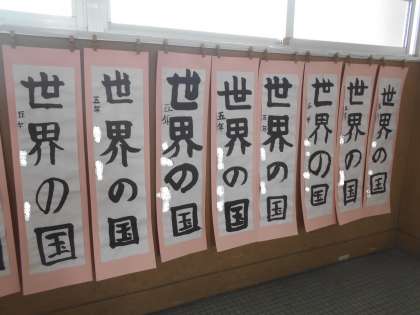 世界の国
五年
世界の国
五年
世界の国
五年
世界の国
五年
世界の国
五年
世界の国
五年
世界の国
五年
世界の国
五年